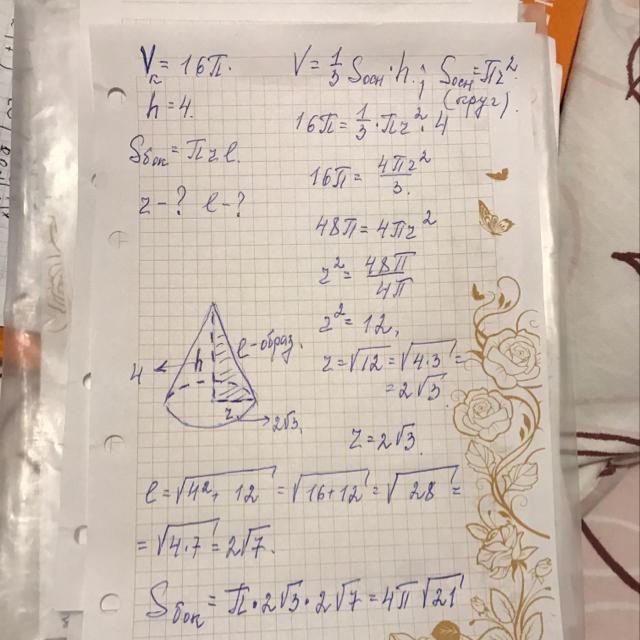 V = 16π.
h = 4.
Sбок = πrl.
r - ? l - ?
V = 1/3 Sосн · h ; Sосн = πr²
(круг).
16π = 1/3 · πr² · 4
16π = 4πr²/3.
48π = 4πr²
r² = 48π/4π
r² = 12,
r = √12 = √4·3 =
= 2√3.
r = 2√3.
4
h
l - образ.
r
2√3
l = √4² + 12 = √16+12 = √28 =
= √4·7 = 2√7.
Sбок = π · 2√3 · 2√7 = 4π√21